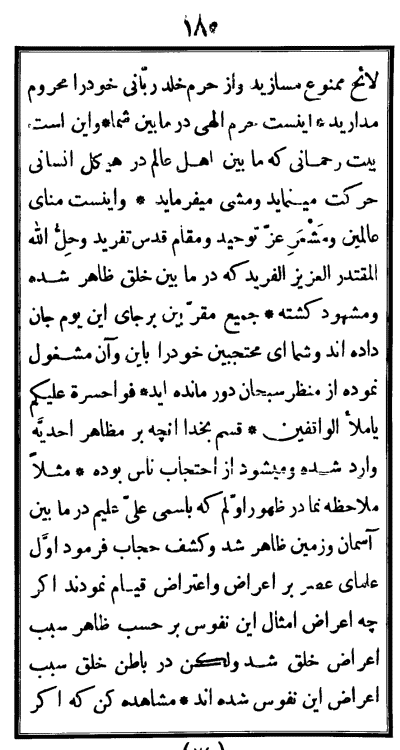 ١٨٥
لائح ممنوع مسازید واز حرم خلد ربّانی خودرا محروم
مدارید * اینست حرم الهی در مابین شما * واین است
بیت رحمانی که ما بین اهل عالم در هیکل انسانی
حرکت مینماید ومشی میفرماید * واینست منای
عالمین ومَشْعَرِ عزّ توحید ومقام قدس تفرید وحِلُّ الله
المقتدر العزیز الفرید که در ما بین خلق ظاهر شده
ومشهود کشته * جمیع مقرّبین برجای این یوم جان
داده اند وشما ای محتجبین خودرا باین وآن مشغول
نموده از منظر سبحان دور مانده اید * فواحسرة علیکم
یاملأ الواقفین * قسم بخدا انچه بر مظاهر احدیّه
وارد شده ومیشود از احتجاب ناس بوده * مثلاً
ملاحظه نما در ظهور اوّلم که باسمی علیّ علیم در ما بین
آسمان وزمین ظاهر شد وکشف حجاب فرمود اوّل
علمای عصر بر اعراض واعتراض قیام نمودند اکر
چه اعراض امثال این نفوس بر حسب ظاهر سبب
اعراض خلق شد ولکن در باطن خلق سبب
اعراض این نفوس شده اند * مشاهده کن که اکر